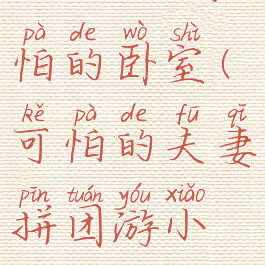 pà de wò shì
怕的卧室(
kě pà de fū qī
可怕的夫妻
pīn tuán yóu xiǎo
拼团游小